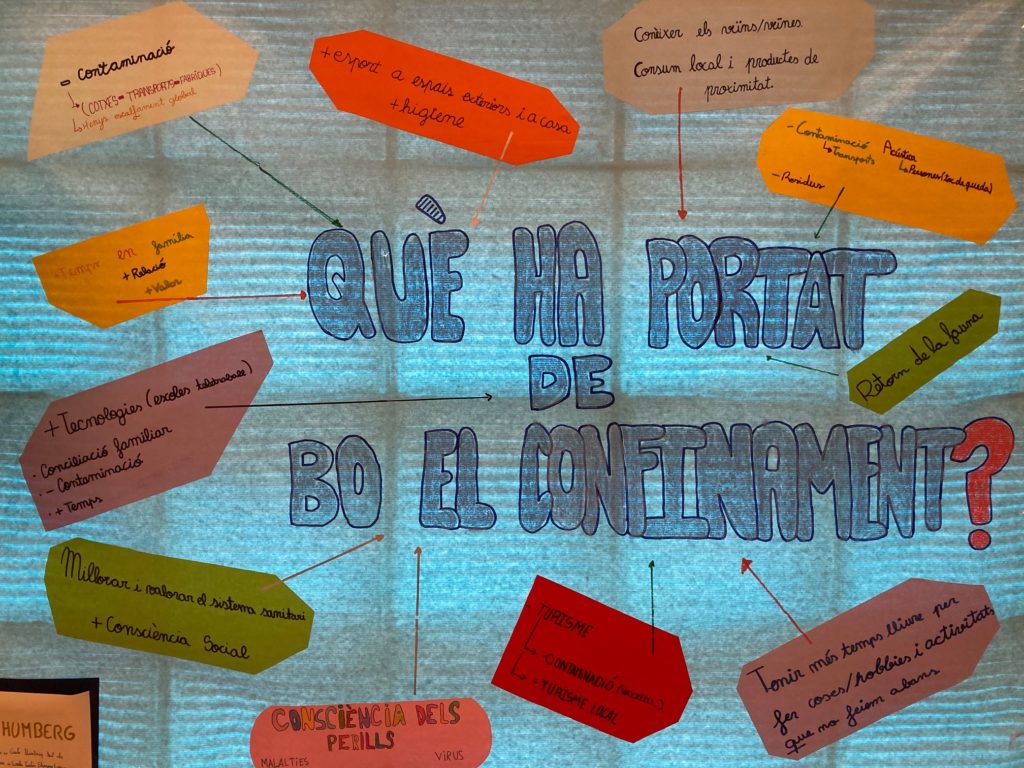 - Contaminació
(COTXES - TRANSPORTS - FÀBRIQUES)
Menys escalfament global
+ esport a espais exteriors i a casa
+ higiene
Conèixer els veïns/veïnes
Consum local i productes de
proximitat.
- Contaminació Acústica
Transports
Persones (toc de queda)
- Residus
+ Temps en família
+ Relació
+ Valor
QUÈ HA PORTAT
DE
BO EL CONFINAMENT?
Retorn de la fauna
+ Tecnologies (escoles teletreball)
· Conciliació familiar
· - Contaminació
· + Temps
Millorar i valorar el sistema sanitari
+ Consciència Social
TURISME
- CONTAMINACIÓ
+ TURISME LOCAL
Tenir més temps lliure per
fer coses/hobbies i activitats
que no feiem abans
CONSCIÈNCIA DELS
PERILLS
MALALTIES
VIRUS
HUMBERG